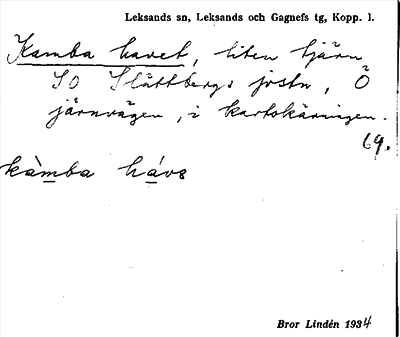 Leksands sn, Leksands och Gagnefs tg, Kopp. l.
Kamba havet, liten tjärn
SO Slättbergs jvstn, Ö
järnvägen, i kartskärningen.
69.
kàmba hávs
Bror Lindén 1934